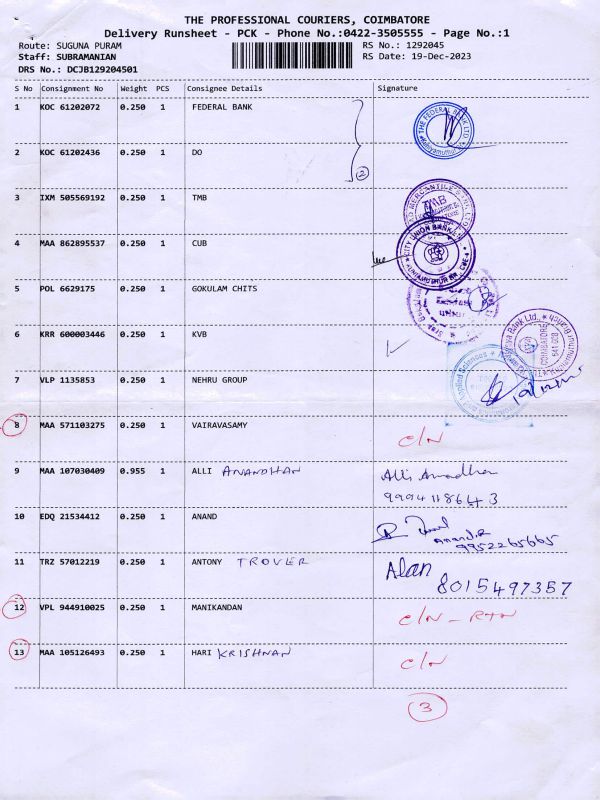 THE PROFESSIONAL COURIERS, COIMBATORE
Delivery Runsheet - PCK - Phone No.:0422-3505555 - Page No.:1
Route: SUGUNA PURAM RS No.: 1292045
Staff: SUBRAMANIAN RS Date: 19-Dec-2023
DRS No.: DCJB129204501
S No Consignment No Weight PCS Consignee Details Signature
1 KOC 61202072 0.250 1 FEDERAL BANK
THE FEDERAL BANK LTD
2 KOC 61202436 0.250 1 DO
2
3 IXM 505569192 0.250 1 TMB
MERCANTILE BANK LTD
TMB
4 MAA 862895537 0.250 1 CUB
CITY UNION BANK
5 POL 6629175 0.250 1 GOKULAM CHITS
6 KRR 600003446 0.250 1 KVB
Bank Ltd.,
COIMBATORE
641 008
7 VLP 1135853 0.250 1 NEHRU GROUP
8 MAA 571103275 0.250 1 VAIRAVASAMY
C/N
9 MAA 107030409 0.955 1 ALLI ANANDHAN Alli Anandhan
9994118643
10 EDQ 21534412 0.250 1 ANAND
Anand.R
9952265665
11 TRZ 57012219 0.250 1 ANTONY TROVER Alan
8015497357
12 VPL 944910025 0.250 1 MANIKANDAN C/N - RTN
13 MAA 105126493 0.250 1 HARI KRISHNAN C/N
3